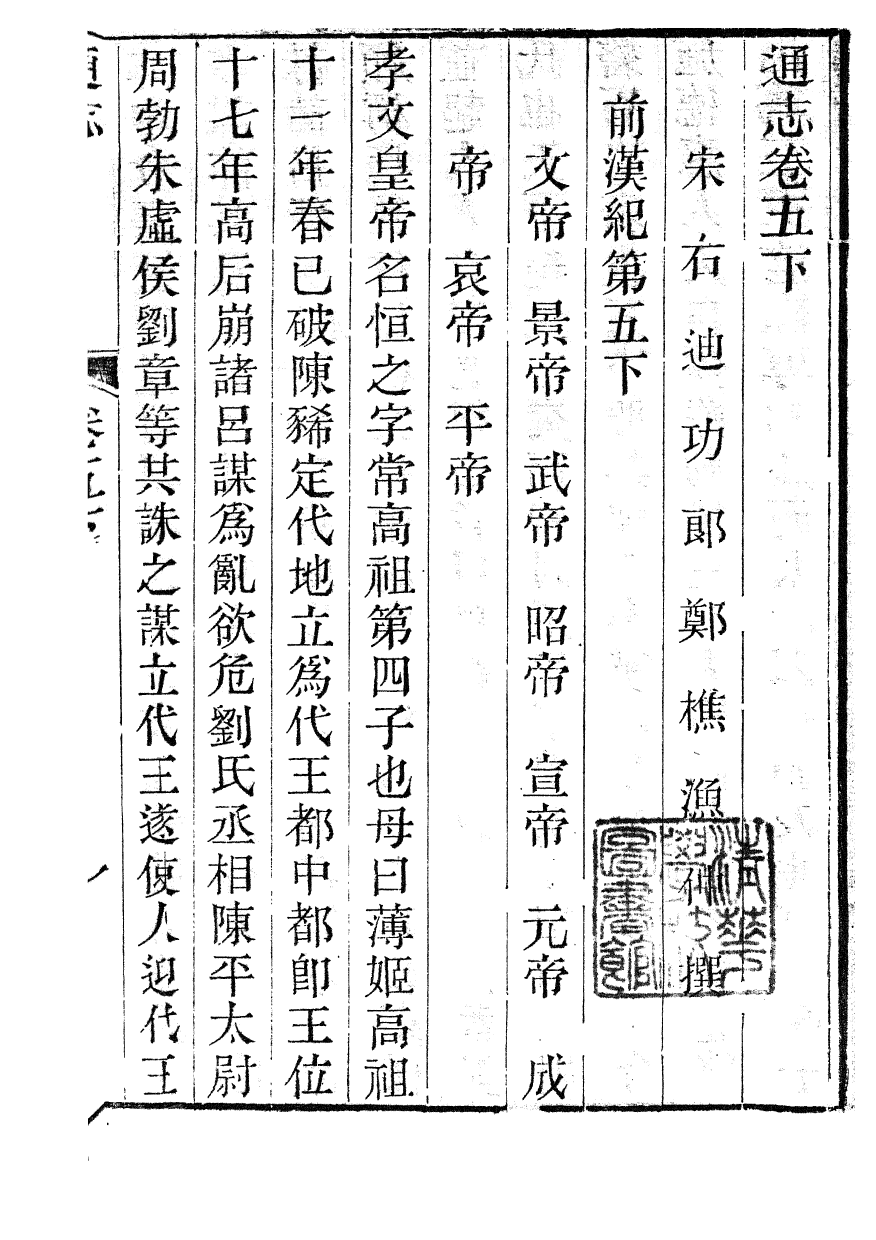 通志卷五下
宋右迪功郎鄭樵漁仲撰
前漢紀第五下
文帝 景帝 武帝 昭帝 宣帝 元帝 成
帝 哀帝 平帝
孝文皇帝名恒之字常高祖第四子也母曰薄姬高祖
十一年春已破陳豨定代地立爲代王都中都卽王位
十七年高后崩諸呂謀爲亂欲危劉氏丞相陳平太尉
周勃朱虛侯劉章等共誅之謀立代王遂使人迎代王
通志 卷五下
清華學校圖書館